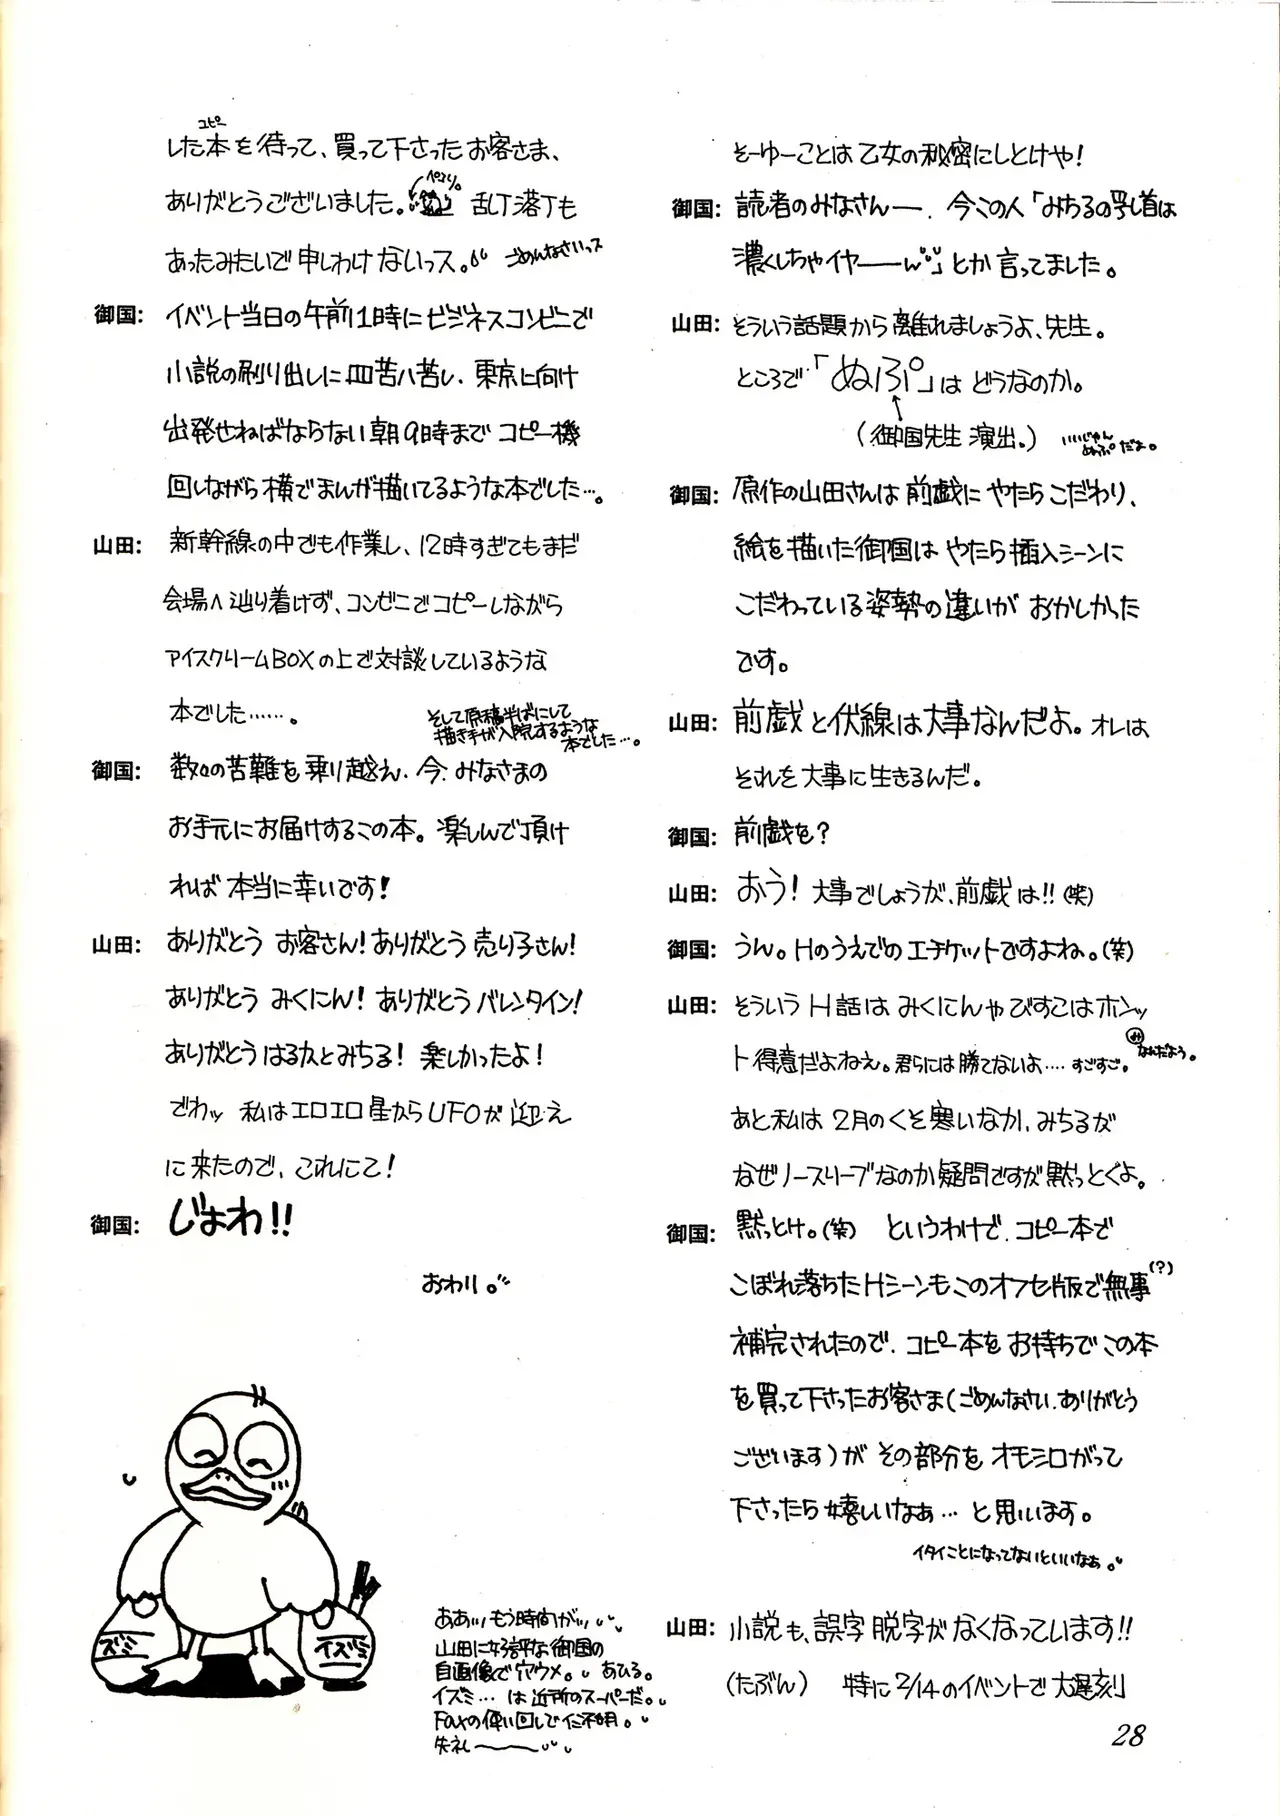 そーゆーことは乙女の秘密にしとけや!
御国: 読者のみなさんー、今この人「みちるの乳首は
濃くしちゃイヤーーん」とか言ってました。
山田: そういう話題から離れましょうよ、先生。
ところで「ぬぷ」はどうなのか。
(御国先生演出。) いいじゃん
ぬぷだよ。
御国: 原作の山田さんは前戯にやたらこだわり、
絵を描いた御国はやたら挿入シーンに
こだわっている姿勢の違いがおかしかった
です。
山田: 前戯と伏線は大事なんだよ。オレは
それを大事に生きるんだ。
御国: 前戯を?
山田: おう! 大事でしょうが、前戯は!!(笑)
御国: うん。Hのうえでのエチケットですよね。(笑)
山田: そういうH話はみくにんやびすこはホンッ
ト得意だよねえ。君らには勝てないよ‥‥すごすご。 み なんだよう。
あと私は2月のくそ寒いなか、みちるが
なぜノースリーブなのか疑問ですが黙っとくよ。
御国: 黙っとけ。(笑) というわけで、コピー本で
こぼれ落ちたHシーンもこのオフセ版で無事(?)
補完されたので、コピー本をお持ちでこの本
を買って下さったお客さま(ごめんなさい、ありがとう
ございます)がその部分をオモシロがって
下さったら嬉しいなぁ…と思います。
イタイことになってないといいなぁ。
山田: 小説も、誤字脱字がなくなっています!!
(たぶん) 特に2/14のイベントで大遅刻
した本を待って、買って下さったお客さま、
コピー
ありがとうございました。ペコリ。 乱丁落丁も
あったみたいで申しわけないっス。ごめんなさいっス
御国: イベント当日の午前1時にビジネスコンビニで
小説の刷り出しに四苦八苦し、東京に向け
出発せねばならない朝9時までコピー機
回しながら横でまんが描いてるような本でした…。
山田: 新幹線の中でも作業し、12時すぎてもまだ
会場へ辿り着けず、コンビニでコピーしながら
アイスクリームBOXの上で対談しているような
本でした……。
そして原稿半ばにして
描き手が入院するような
本でした…。
御国: 数々の苦難を乗り越え、今、みなさまの
お手元にお届けするこの本。楽しんで頂け
れば本当に幸いです!
山田: ありがとうお客さん!ありがとう売り子さん!
ありがとうみくにん!ありがとうバレンタイン!
ありがとうはるかとみちる! 楽しかったよ!
でわッ 私はエロエロ星からUFOが迎え
に来たので、これにて!
御国: じょわ!!
おわり。
ズミ
イズミ
ああ…もう時間が…
山田に好評な御国の
自画像で穴ウメ。あひる。
イズミ…は近所のスーパーだ。
Faxの使い回しで仁不明。
失礼〜
28